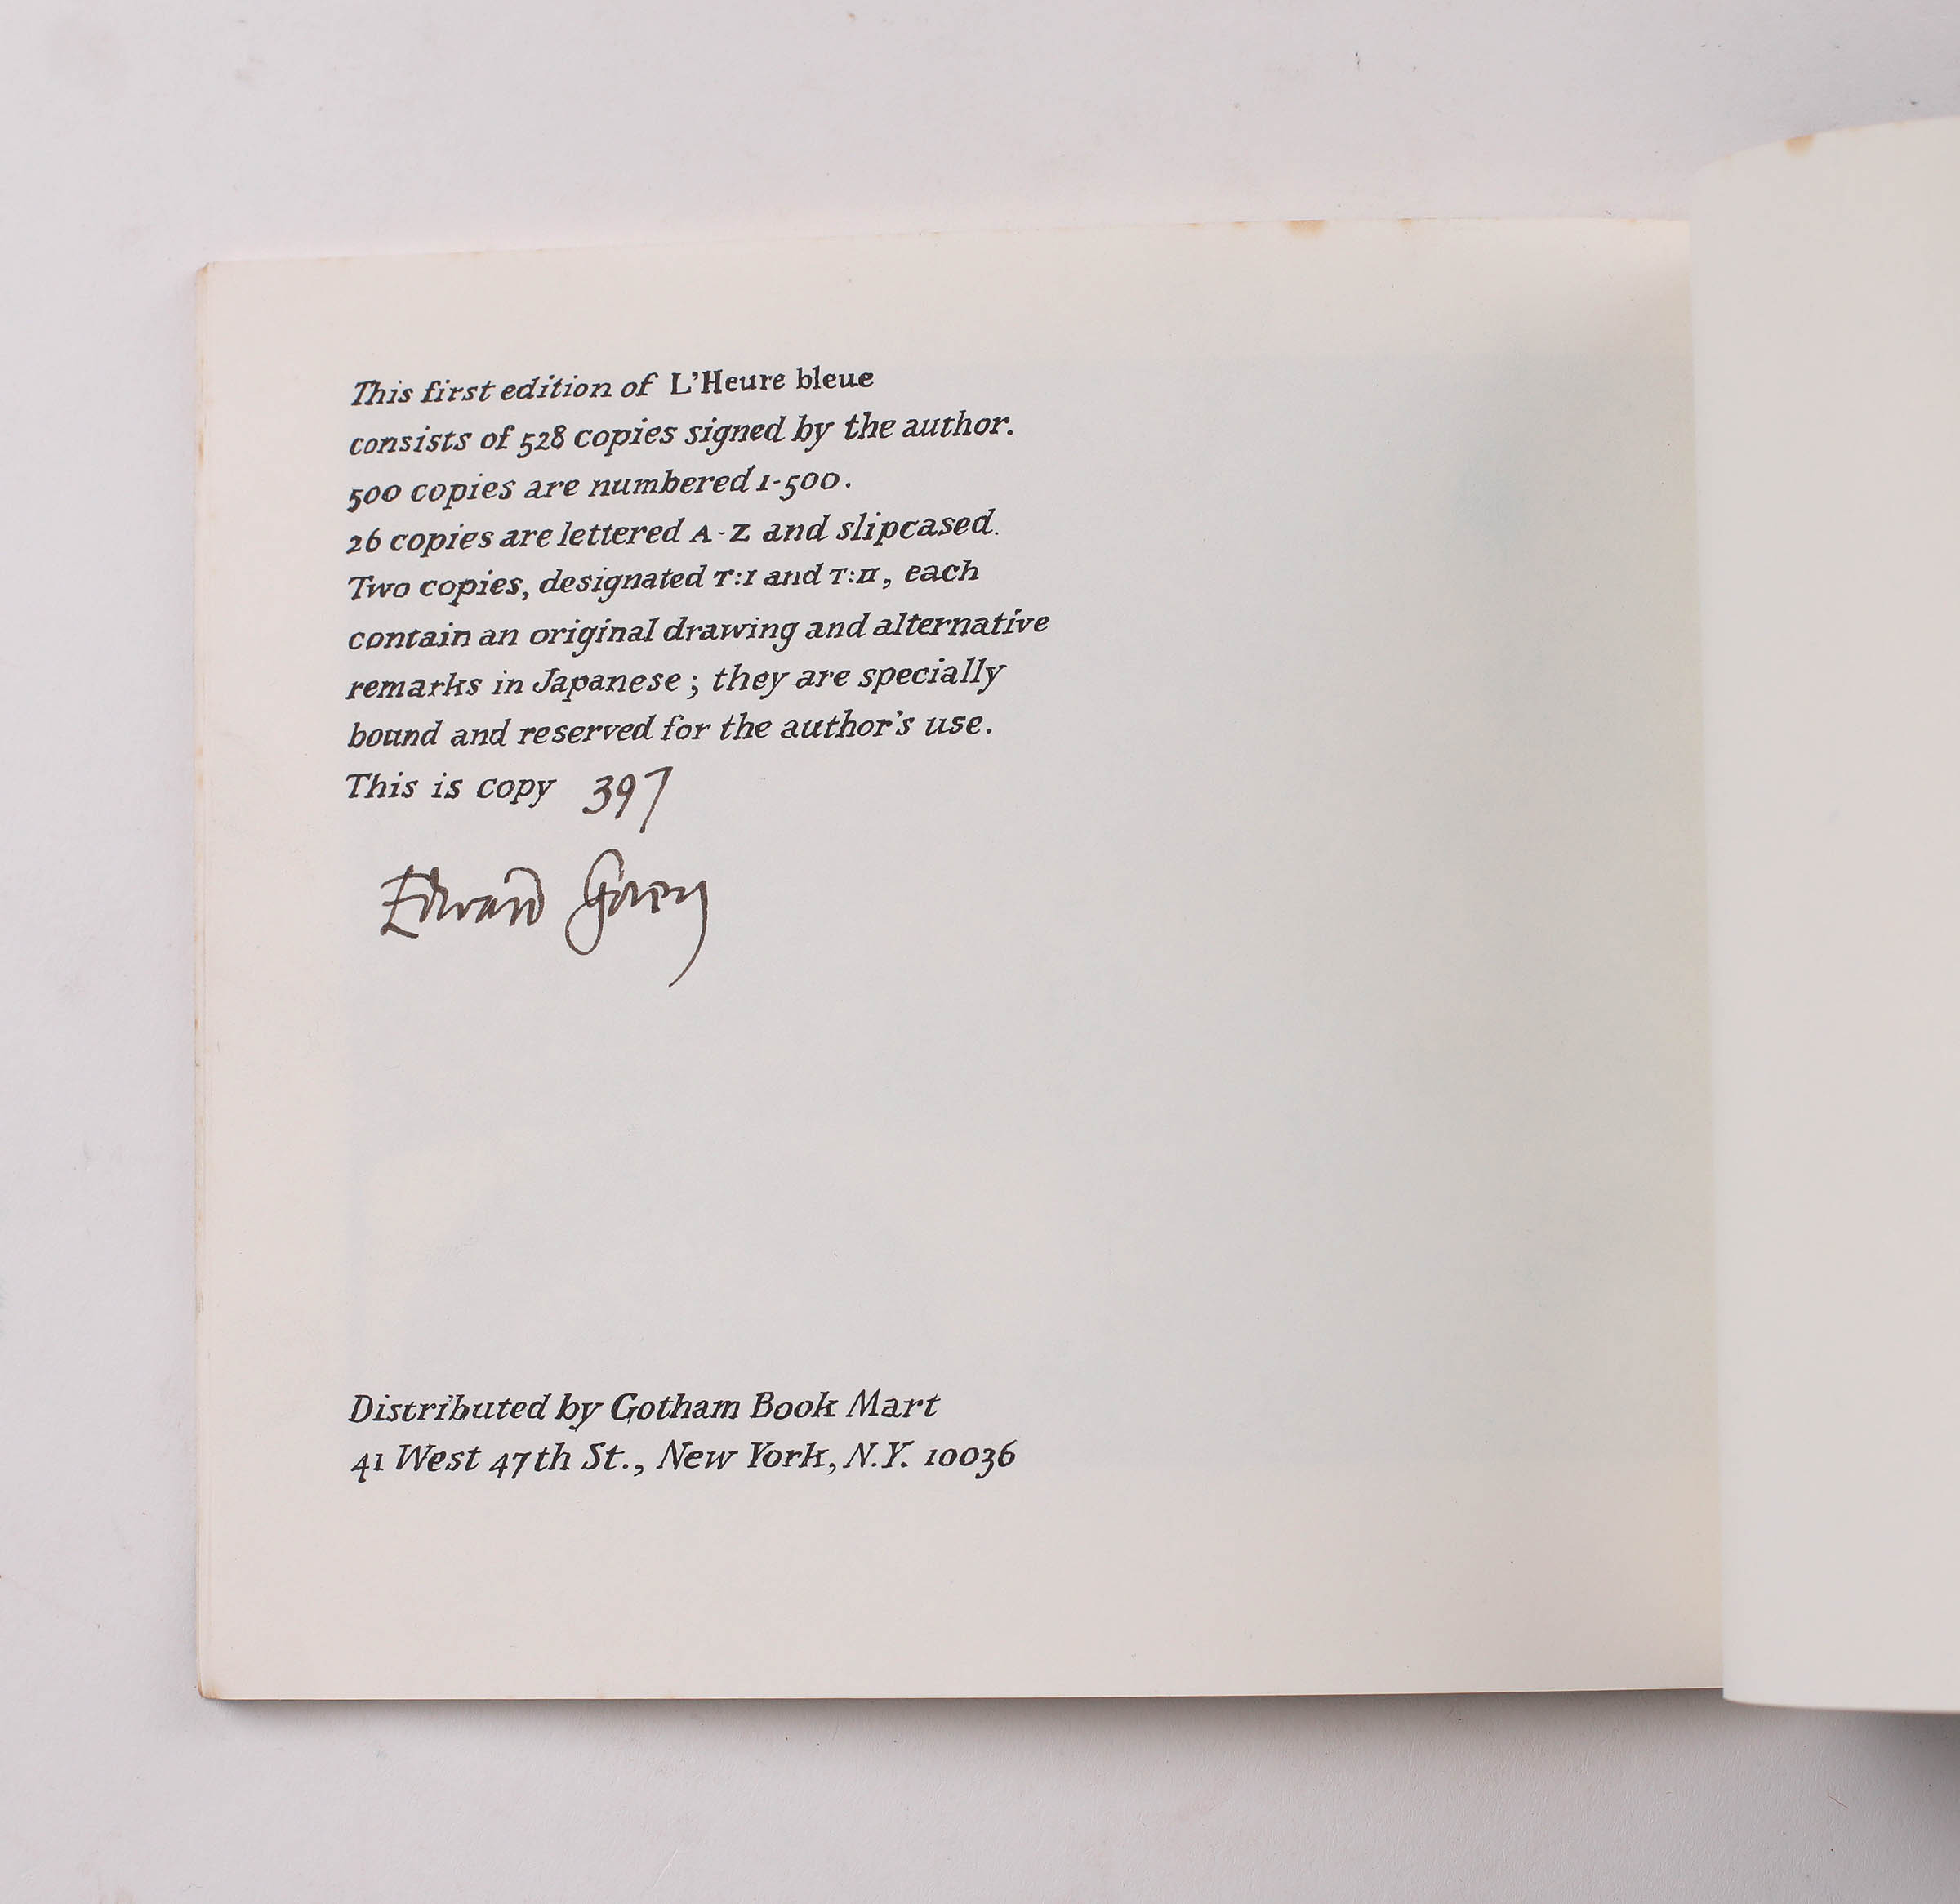 This first edition of L'Heure bleue
consists of 528 copies signed by the author.
500 copies are numbered 1-500.
26 copies are lettered A-Z and slipcased.
Two copies, designated T:I and T:II, each
contain an original drawing and alternative
remarks in Japanese; they are specially
bound and reserved for the author's use.
This is copy 397
Edward Gorey
Distributed by Gotham Book Mart
41 West 47th St., New York, N.Y. 10036